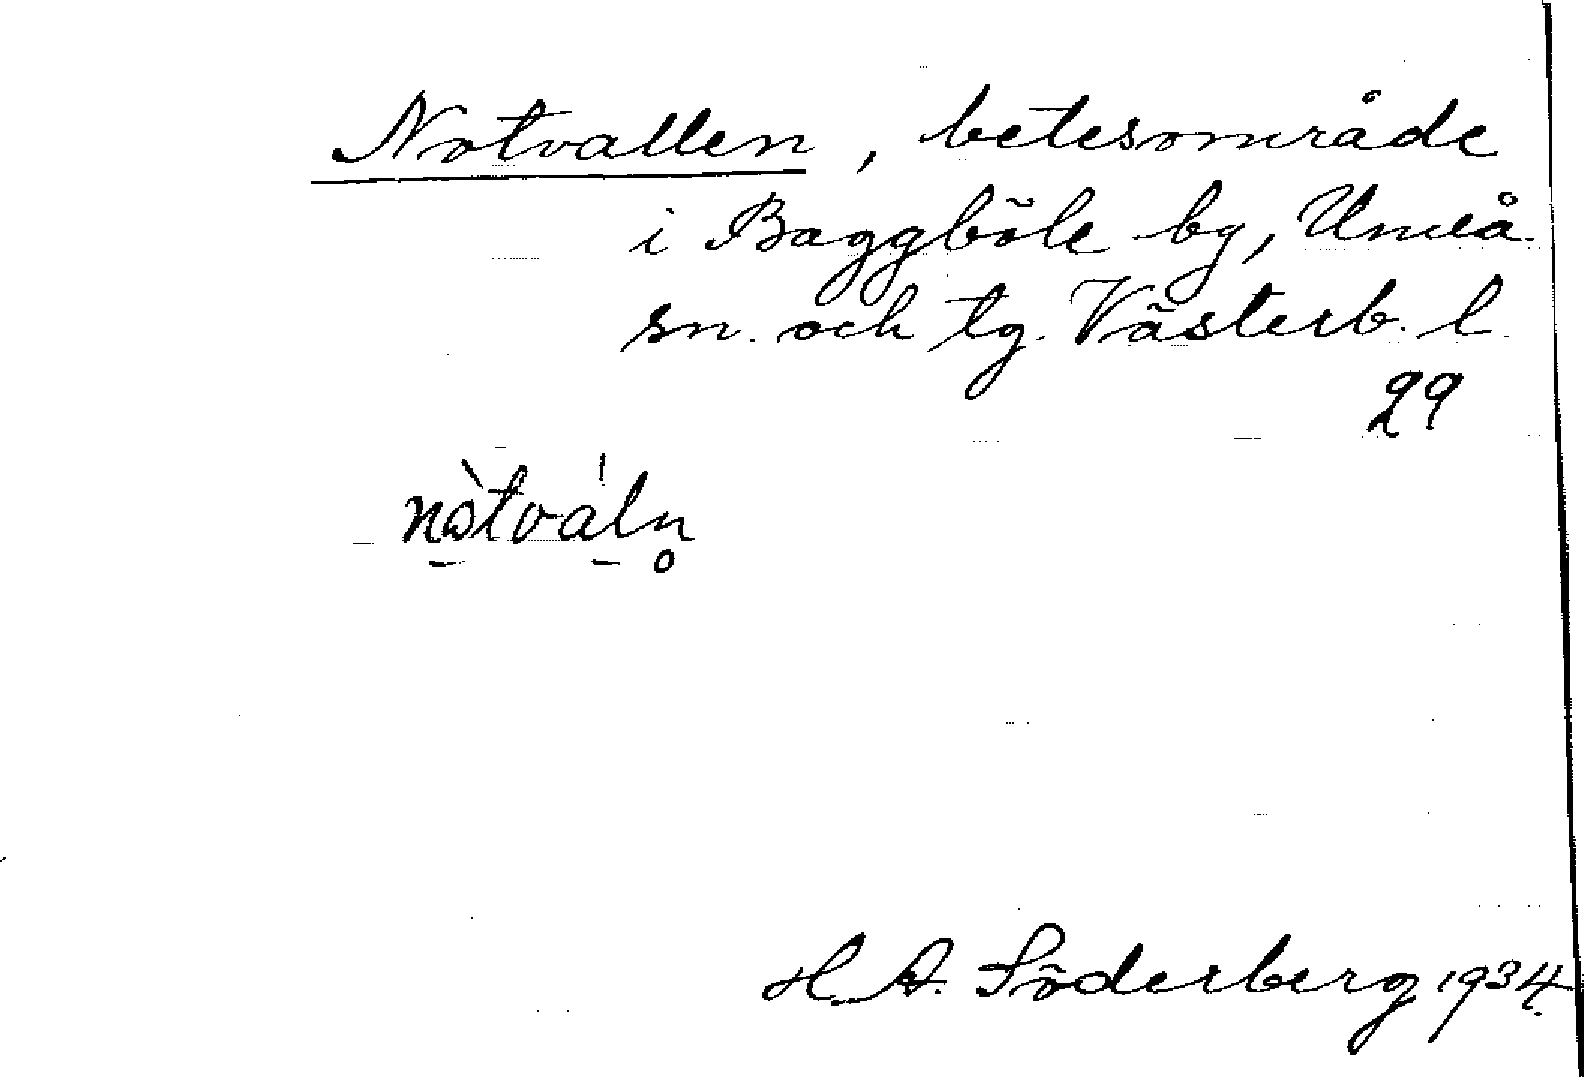 Notvallen, betesområde
i Baggböle by, Umeå
sn. och tg. Västerb. l
29
nòtváln̥
H. A. Söderberg 1934.